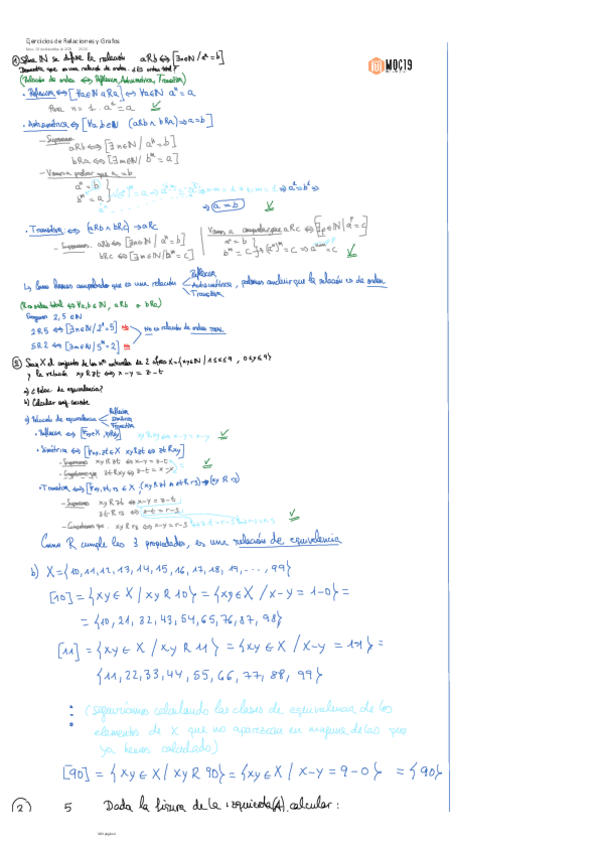 Ejercicios de Relaciones y Grafos
① Sobre ℕ se define la relación aRb ⟺ [∃n∈ℕ / aⁿ = b]
MOC19
Demuestra que es una relación de orden. ¿Es orden total?
(Relación de orden ⟺ Reflexiva, Antisimétrica, Transitiva)
• Reflexiva ⟺ [∀a∈ℕ aRa] ⟺ ∀a∈ℕ aⁿ = a
Para n = 1. a¹ = a ✓
• Antisimétrica ⟺ [∀a,b∈ℕ (aRb ∧ bRa) ⟹ a=b]
- Suponemos
aRb ⟺ [∃n∈ℕ / aⁿ = b]
bRa ⟺ [∃m∈ℕ / bᵐ = a]
- Vamos a probar que a = b
aⁿ = b
bᵐ = a
⟹ a = b ✓
• Transitiva ⟺ (aRb ∧ bRc) → aRc
- Suponemos aRb ⟺ [∃n∈ℕ / aⁿ = b]
bRc ⟺ [∃m∈ℕ / bᵐ = c]
Vamos a comprobar que aRc ⟺ [∃p∈ℕ / aᵖ = c]
aⁿ = b
bᵐ = c (aⁿ)ᵐ = c ⟹ aⁿᵐ = c ✓
↳ Como hemos comprobado que es una relación Reflexiva Antisimétrica Transitiva, podemos concluir que la relación es de orden
(R orden total ⟺ ∀a,b∈ℕ, aRb o bRa)
2, 5 ∈ ℕ
2R5 ⟺ [∃n∈ℕ / 2ⁿ = 5] no
5R2 ⟺ [∃m∈ℕ / 5ᵐ = 2] no
No es relación de orden total
y la relación xy R zt ⟺ x-y = z-t
a) ¿Relac. de equivalencia?
b) Calcular conj. cociente
a) Relación de equivalencia Reflexiva Simétrica Transitiva
• Reflexiva ⟺ [∀xy∈X, xyRxy] xyRxy ⟺ x-y = x-y ✓
• Simétrica ⟺ [∀xy, zt∈X xyRzt ⟺ ztRxy]
- Suponemos xyRzt ⟺ x-y = z-t
ztRxy ⟺ z-t = x-y ✓
• Transitiva ⟺ [∀xy, zt, rs ∈ X, (xyRzt ∧ ztRrs) → (xyRrs)
- Suponemos xyRzt ⟺ x-y = z-t
ztRrs ⟺ z-t = r-s
- Comprobamos que xyRrs ⟺ x-y = r-s ✓
Como R cumple las 3 propiedades, es una relación de equivalencia
b) X = {10, 11, 12, 13, 14, 15, 16, 17, 18, 19, ..., 99}
[10] = {xy ∈ X / xy R 10} = {xy ∈ X / x-y = 1-0} =
= {10, 21, 32, 43, 54, 65, 76, 87, 98}
[11] = {xy ∈ X / xy R 11} = {xy ∈ X / x-y = 1-1} =
{11, 22, 33, 44, 55, 66, 77, 88, 99}
(Seguiríamos calculando las clases de equivalencia de los
elementos de X que no aparezcan en ninguna de las que
ya hemos calculado)
[90] = {xy ∈ X / xy R 90} = {xy ∈ X / x-y = 9-0} = {90}
② 5 Dada la figura de la izquierda (A), calcular: